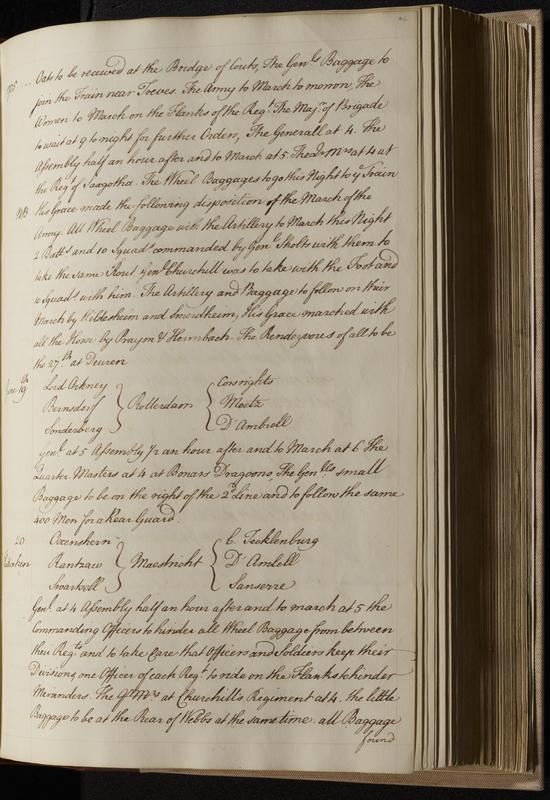 1705 ... Oats to be received at the Bridge of Couts, The Gen.ls Baggage to
join the Train near Treves. The Army to March to morrow. The
Women to March on the Flanks of the Reg.t The Maj.rs of Brigade
to wait at 9 to night for further Orders, The Generall at 4. The
Assembly half an hour after and to March at 5. The Qr. Mrs at 4 at
the Reg.t of Saxgotha. The Wheel Baggages to go this Night to ye Train
NB His Grace made the following disposition of the March of the
Army. All Wheel Baggage with the Artillery to March this Night
2 Batt.s and 10 Squad.s commanded by Gen.l Sholts with them to
take the same Rout Gen.l Churchill was to take with the Foot and
10 Squad.s with him. The Artillery and Baggage to follow on their
March by Hildesheim and Smeidheim, His Grace marched with
all the Horse by Praym & Hermbach. The Rendezvous of all to be
the 27.th at Deuren
June 19th Lord Orkney } { Consrights
Bernsdorf } Rotterdam { Moetz
Sonderberg } { D'Ambrell
Gen.l at 5 Assembly 1/2 an hour after and to March at 6 The
Quarter Masters at 4 at Bonars Dragoons, The Gen.lls small
Baggage to be on the right of the 2.d Line and to follow the same
400 Men for a Rear Guard.
20 Oxenshern } { C. Tecklenburg
Rantzaw } Maestricht { D'Amlell
Swartzell } { Sanserre
Gen.l at 4 Assembly half an hour after and to march at 5 the
Commanding Officers to hinder all Wheel Baggage from between
their Reg.ts and to take Care that Officers and Soldiers keep their
Divisions, one Officer of each Reg.t to ride on the Flanks to hinder
Meranders. The Qr Mrs at Churchills Regiment at 4. the little
Baggage to be at the Rear of Webbs at the same time. all Baggage
found